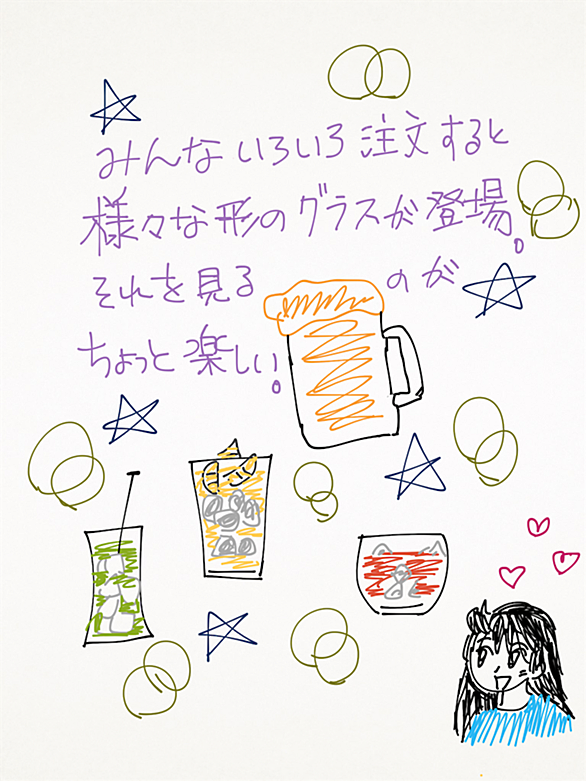 みんないろいろ注文すると
様々な形のグラスが登場。
それを見るのが
ちょっと楽しい。